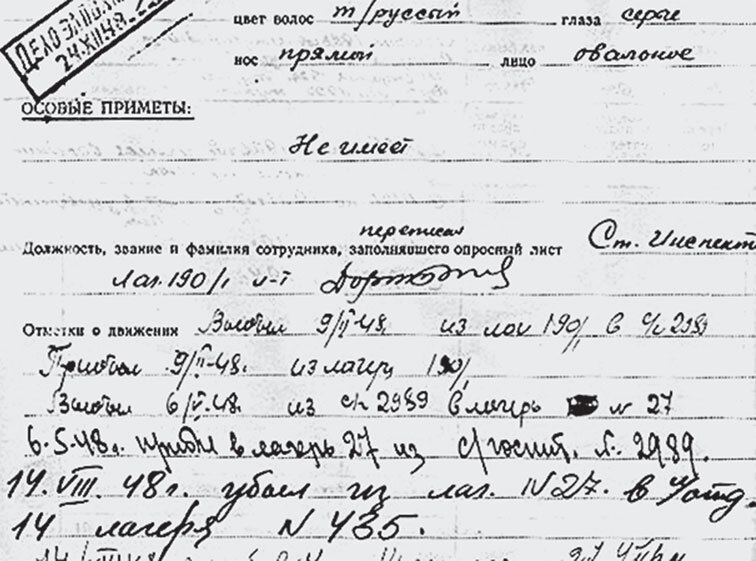 ДЕЛО
24.XII.48.
цвет волос т/русый глаза серые
нос прямой лицо овальное
ОСОБЫЕ ПРИМЕТЫ:
Не имеет
переписал
Должность, звание и фамилия сотрудника, заполнявшего опросный лист Ст. Инспект
Лаг. 190/1 л-т
Отметки о движении Выбыл 9/II-48. из лаг 190/1 в с/г 2989
Прибыл 9/II-48г. из лагеря 190/1
Выбыл 6/V-48. из с/г 2989 в лагерь N 27
6.5.48г. прибыл в лагерь 27 из с/госпит. №. 2989.
14.VIII. 48г. убыл из лаг. N 27. в отд.
14 лагеря N 435.